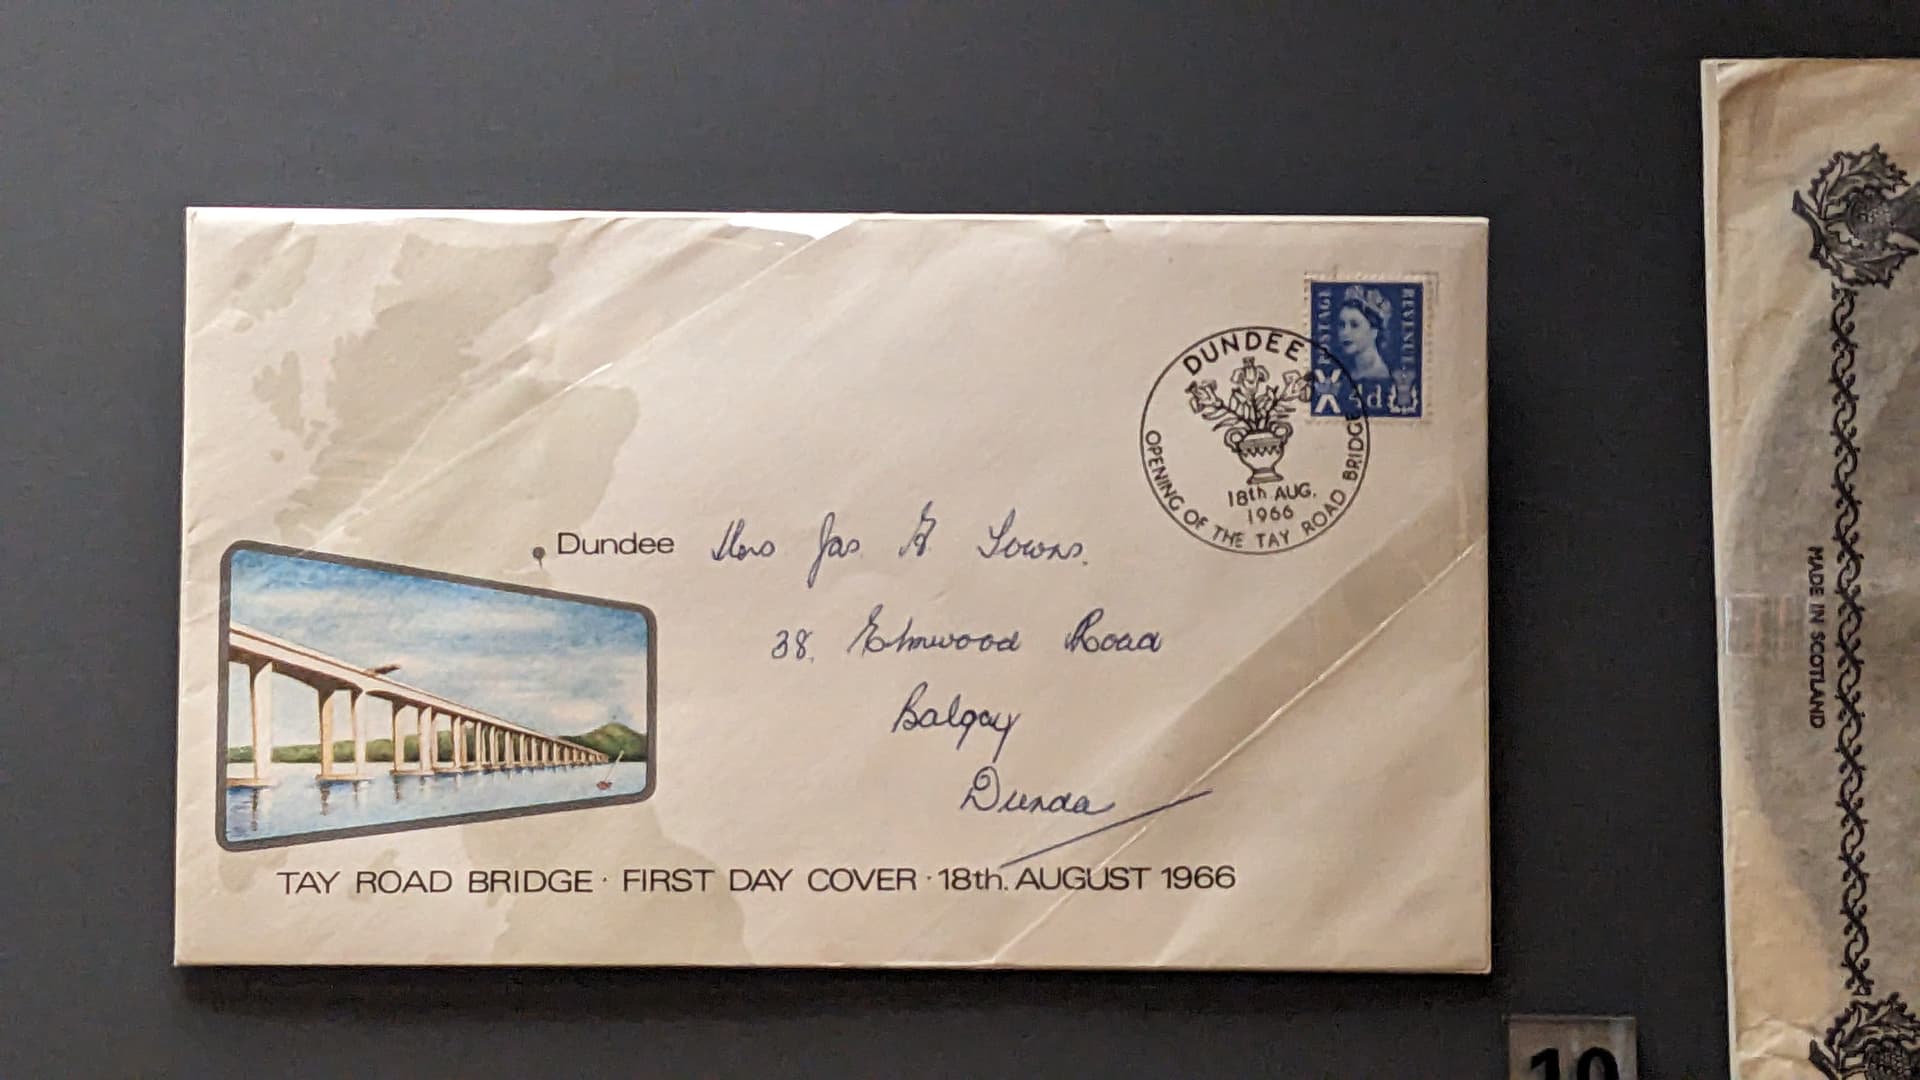 POSTAGE
REVENUE
4d
DUNDEE
18th AUG.
1966
OPENING OF THE TAY ROAD BRIDGE
Dundee
Mrs Jas G Towns.
38, Elmwood Road
Balgay
Dundee
TAY ROAD BRIDGE · FIRST DAY COVER · 18th. AUGUST 1966
MADE IN SCOTLAND
10